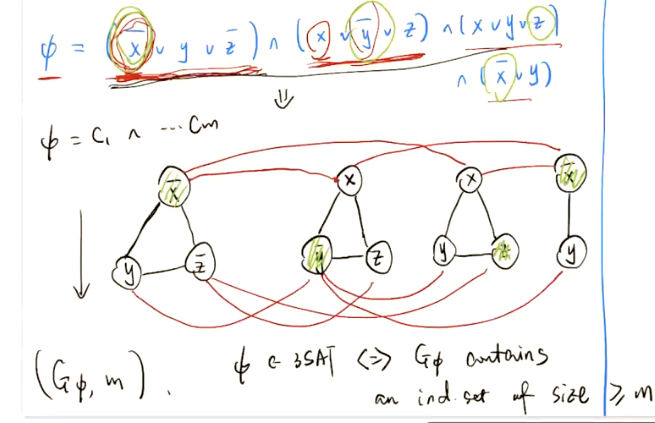 φ = (x̄ ∨ y ∨ z̄) ∧ (x ∨ ȳ ∨ z) ∧ (x ∨ y ∨ z)
∧ (x̄ ∨ y)
⇓
φ = C₁ ∧ ⋯ Cₘ
x̄ x x x̄
y z̄ ȳ z y z y
(Gφ, m).
φ ∈ 3SAT ⟺ Gφ contains
an ind. set of size ≥ m